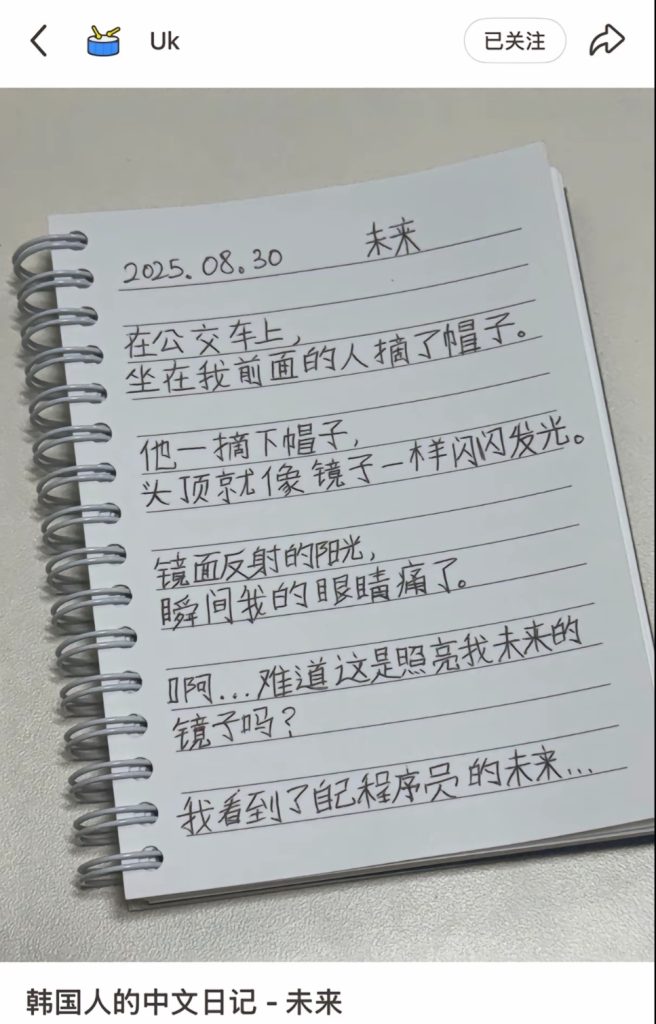 Uk
已关注
2025.08.30 未来
在公交车上,
坐在我前面的人摘了帽子。
他一摘下帽子,
头顶就像镜子一样闪闪发光。
镜面反射的阳光,
瞬间我的眼睛痛了。
啊...难道这是照亮我未来的
镜子吗?
我看到了自己程序员的未来...
韩国人的中文日记 - 未来